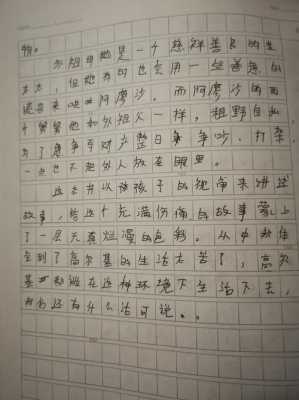 物。
外祖母她是一个慈祥善良的生
方方，但她有时也会用一些善意的
谎言来哄吓阿廖沙。而阿廖沙的两
个舅舅他和外祖父一样，粗野自私，
为了争夺财产整日争吵、打架，
一点也不把别人放在眼里。
这本书以孩子的视角来讲述
故事，给这个充满伤痛的故事蒙上
了一层天真烂漫的色彩。从中我体
会到了高尔基的生活太苦了，高尔
基都能在这种环境下生活下去，
我们还有什么话可说。